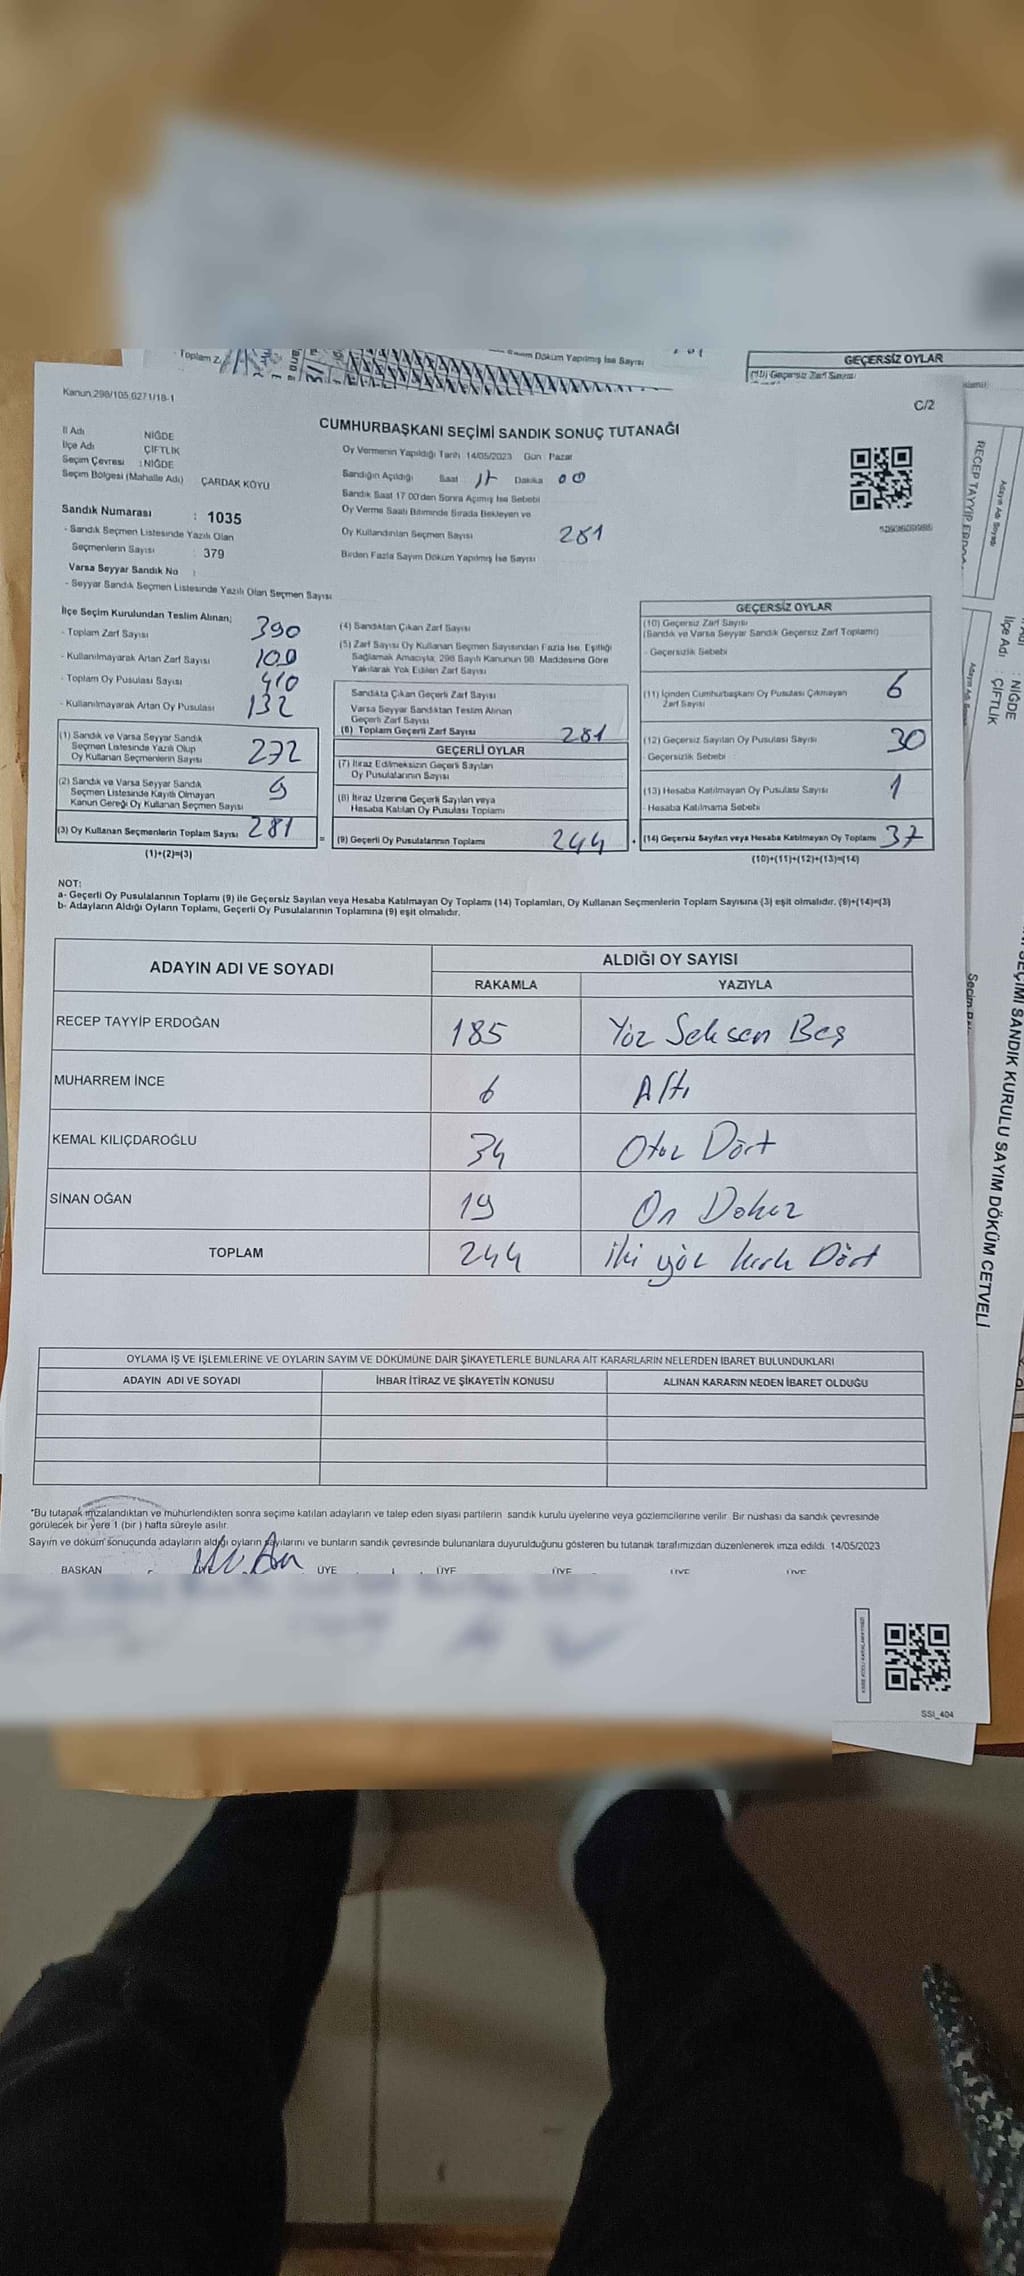 Toplam Z
Döküm Yapılmış İse Sayısı
GEÇERSİZ OYLAR
(10) Geçersiz Zarf Sayısı
Kanun.298/105.0271/18-1
C/2
CUMHURBAŞKANI SEÇİMİ SANDIK SONUÇ TUTANAĞI
İl Adı NİĞDE
İlçe Adı ÇİFTLİK
Seçim Çevresi : NİĞDE
Seçim Bölgesi (Mahalle Adı) ÇARDAK KÖYÜ
Oy Vermenin Yapıldığı Tarih 14/05/2023 Gün : Pazar
Sandığın Açıldığı Saat 17 Dakika 00
Sandık Saat 17 00'den Sonra Açılmış İse Sebebi
Oy Verme Saati Bitiminde Sırada Bekleyen ve
Oy Kullandırılan Seçmen Sayısı 281
Birden Fazla Sayım Döküm Yapılmış İse Sayısı
Sandık Numarası : 1035
- Sandık Seçmen Listesinde Yazılı Olan
Seçmenlerin Sayısı 379
Varsa Seyyar Sandık No :
- Seyyar Sandık Seçmen Listesinde Yazılı Olan Seçmen Sayısı
İlçe Seçim Kurulundan Teslim Alınan;
- Toplam Zarf Sayısı 390
- Kullanılmayarak Artan Zarf Sayısı 100
- Toplam Oy Pusulası Sayısı 410
- Kullanılmayarak Artan Oy Pusulası 132
(1) Sandık ve Varsa Seyyar Sandık
Seçmen Listesinde Yazılı Olup
Oy Kullanan Seçmenlerin Sayısı 272
(2) Sandık ve Varsa Seyyar Sandık
Seçmen Listesinde Kayıtlı Olmayan
Kanun Gereği Oy Kullanan Seçmen Sayısı 9
(3) Oy Kullanan Seçmenlerin Toplam Sayısı 281
(1)+(2)=(3)
(4) Sandıktan Çıkan Zarf Sayısı
(5) Zarf Sayısı Oy Kullanan Seçmen Sayısından Fazla İse, Eşitliği
Sağlamak Amacıyla, 298 Sayılı Kanunun 98. Maddesine Göre
Yakılarak Yok Edilen Zarf Sayısı
Sandıkta Çıkan Geçerli Zarf Sayısı
Varsa Seyyar Sandıktan Teslim Alınan
Geçerli Zarf Sayısı
(6) Toplam Geçerli Zarf Sayısı 281
GEÇERLİ OYLAR
(7) İtiraz Edilmeksizin Geçerli Sayılan
Oy Pusulalarının Sayısı
(8) İtiraz Üzerine Geçerli Sayılan veya
Hesaba Katılan Oy Pusulası Toplamı
= (9) Geçerli Oy Pusulalarının Toplamı 244 +
GEÇERSİZ OYLAR
(10) Geçersiz Zarf Sayısı
(Sandık ve Varsa Seyyar Sandık Geçersiz Zarf Toplamı)
- Geçersizlik Sebebi
(11) İçinden Cumhurbaşkanı Oy Pusulası Çıkmayan
Zarf Sayısı 6
(12) Geçersiz Sayılan Oy Pusulası Sayısı 30
- Geçersizlik Sebebi
(13) Hesaba Katılmayan Oy Pusulası Sayısı 1
- Hesaba Katılmama Sebebi
(14) Geçersiz Sayılan veya Hesaba Katılmayan Oy Toplamı 37
(10)+(11)+(12)+(13)=(14)
NOT:
a- Geçerli Oy Pusulalarının Toplamı (9) ile Geçersiz Sayılan veya Hesaba Katılmayan Oy Toplamı (14) Toplamları, Oy Kullanan Seçmenlerin Toplam Sayısına (3) eşit olmalıdır. (9)+(14)=(3)
b- Adayların Aldığı Oyların Toplamı, Geçerli Oy Pusulalarının Toplamına (9) eşit olmalıdır.
ADAYIN ADI VE SOYADI ALDIĞI OY SAYISI
RAKAMLA YAZIYLA
RECEP TAYYİP ERDOĞAN 185 Yöz Seksen Beş
MUHARREM İNCE 6 Altı
KEMAL KILIÇDAROĞLU 34 Otuz Dört
SİNAN OĞAN 19 On Dokuz
TOPLAM 244 iki yöz kırk Dört
OYLAMA İŞ VE İŞLEMLERİNE VE OYLARIN SAYIM VE DÖKÜMÜNE DAİR ŞİKAYETLERLE BUNLARA AİT KARARLARIN NELERDEN İBARET BULUNDUKLARI
ADAYIN ADI VE SOYADI İHBAR İTİRAZ VE ŞİKAYETİN KONUSU ALINAN KARARIN NEDEN İBARET OLDUĞU
*Bu tutanak imzalandıktan ve mühürlendikten sonra seçime katılan adayların ve talep eden siyasi partilerin sandık kurulu üyelerine veya gözlemcilerine verilir. Bir nüshası da sandık çevresinde
görülecek bir yere 1 (bir ) hafta süreyle asılır.
Sayım ve döküm sonuçunda adayların aldığı oyların sayılarını ve bunların sandık çevresinde bulunanlara duyurulduğunu gösteren bu tutanak tarafımızdan düzenlenerek imza edildi. 14/05/2023
BAŞKAN ÜYE ÜYE ÜYE ÜYE ÜYE
SSI_404
RECEP TAYYİP ERDOĞ
Adayın Adı Soyadı
İlçe Adı : ÇİFTLİK
: NİĞDE
SEÇİMİ SANDIK KURULU SAYIM DÖKÜM CETVELİ